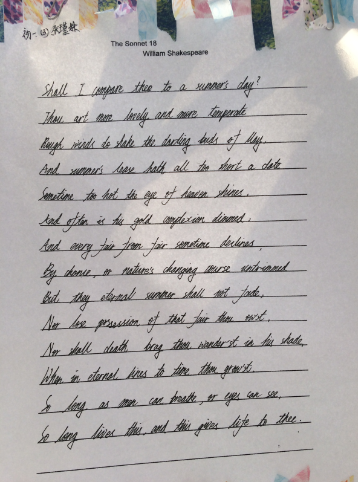 初一(4)
The Sonnet 18
William Shakespeare
Shall I compare thee to a summer's day?
Thou art more lovely and more temperate
Rough winds do shake the darling buds of May.
And summer's lease hath all too short a date
Sometime too hot the eye of heaven shines.
And often is his gold complexion dimmed.
And every fair from fair sometime declines,
By chance, or nature's changing course untrimmed
But thy eternal summer shall not fade,
Nor lose possession of that fair thou ow'st.
Nor shall death brag thou wander'st in his shade,
When in eternal lines to time thou grow'st.
So long as men can breathe or eyes can see,
So long lives this and this gives life to thee.